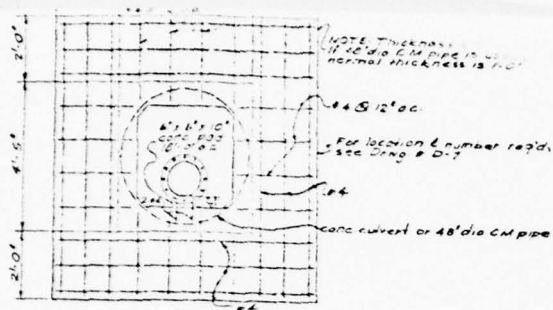 NOTE: Thickness
If 48" dia CM pipe is
normal thickness is 1'-0"
2'-0"
#4 @ 12" o.c.
6" x 6" x 10"
conc pad
For location & number req'd,
see Drwg # D-7
4'-5"
#4
conc culvert or 48" dia CM pipe
2'-0"
#4